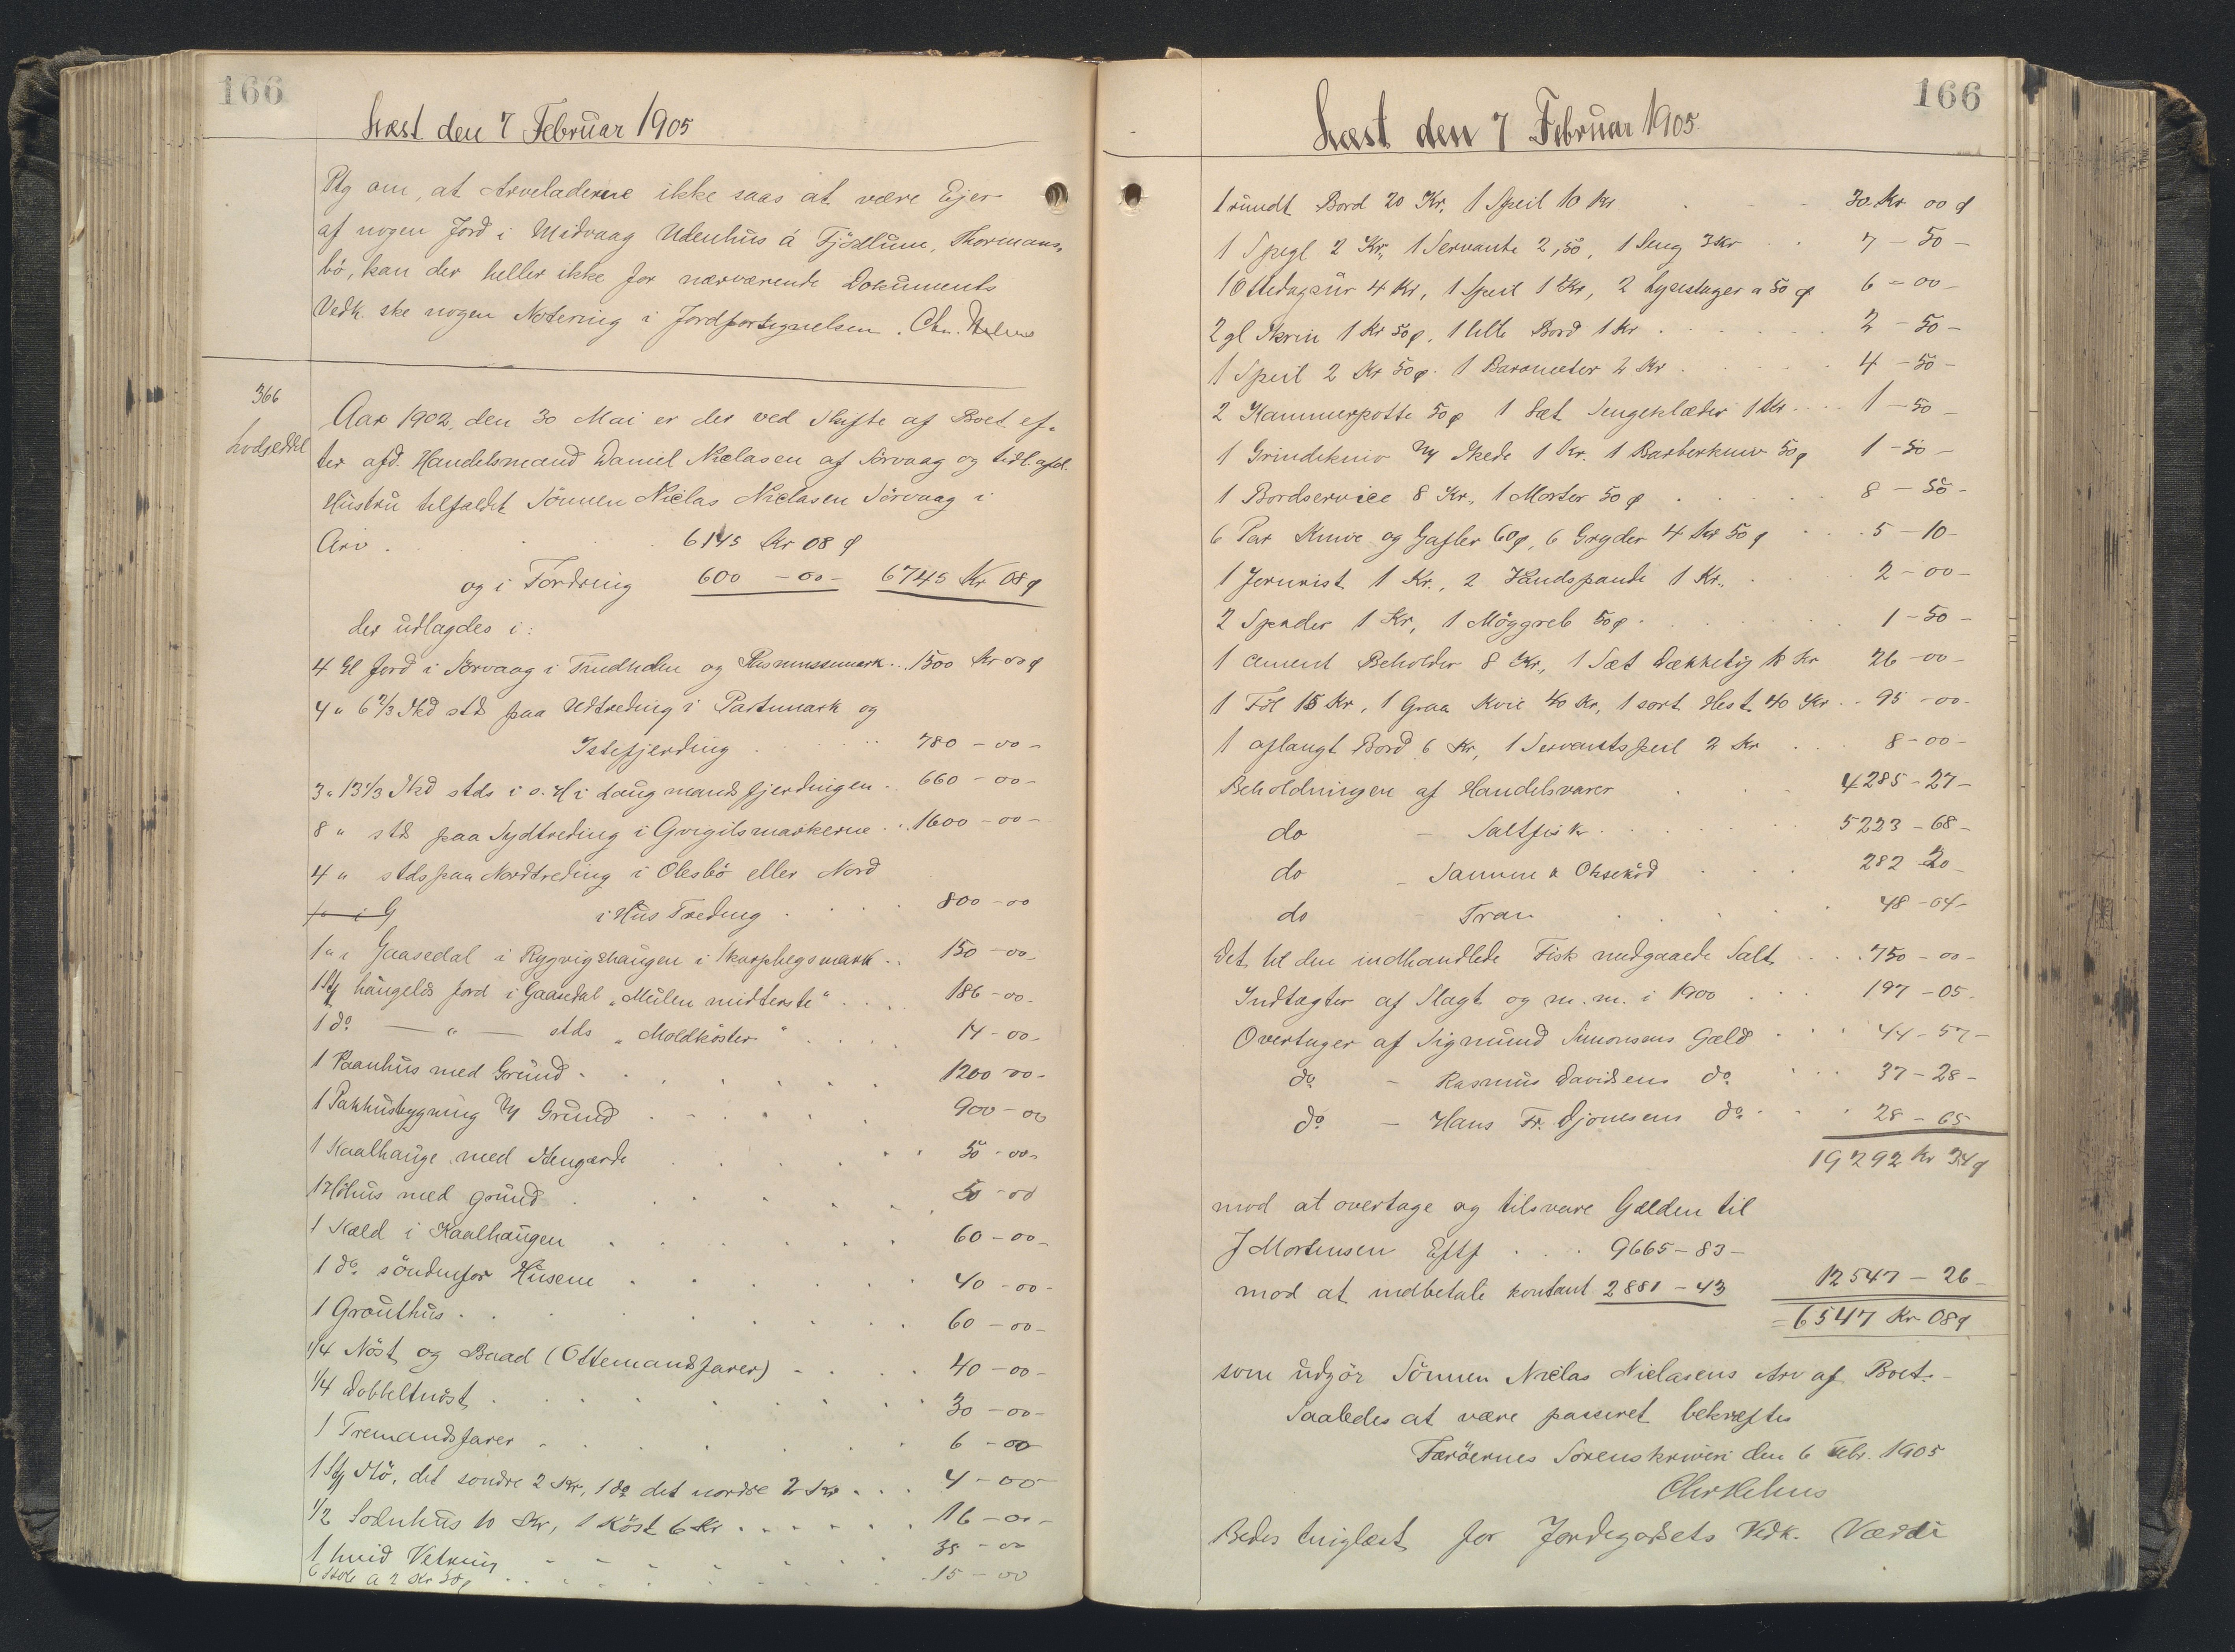 166
Læst den 7 Februar 1905
Ptg om, at Arveladerne ikke saas at være Ejer
af nogen Jord i Midvaag Udenhus á Fjödlum, Thormans-
bö, kan der heller ikke for nærværende Dokuments
Vedk. ske nogen Notering i Jordfortegnelsen. Chr.
366
Lodseddel
Aar 1902, den 30 Mai er der ved Skifte af Boet ef-
ter afd. Handelsmand Daniel Niclasen af Sörvaag og tidl. afd.
Hustru tilfaldet Sönnen Niclas Niclasen Sörvaag i
Arv . 6145 Kr 08 ø
og i Fordring 600 - 00 - 6745 Kr 08 ø
der udlagdes i:
4 Gl Jord i Sörvaag i og Rasmussemark .. 1500 Kr 00 ø
4 " 6 2/3 Skd stds paa Udtreding i Partmark og
Istefjerding . . . 780 - 00 -
3 " 13 1/3 Skd stds i o. H i Laugmandsfjerdingen . 660 - 00 -
8 " stds paa Sydtreding i Gvigilsmarkerne . . 1600 - 00 -
4 " stds paa Nordtreding i Olesbö eller Nord
1 " i G i Hus Treding . . . 800 - 00
1 " i Gaasedal i Rygvigshaugen i Skarphegsmark . . 150 - 00 -
1 Stk haugelds Jord i Gaasedal "Mulen midterste" . . . 186 - 00 -
1 do — " — stds "Moldköster" . . . 14 - 00 -
1 Vaanhus med Grund . . . 1200 00 -
1 Pakhusbygning m/ Grund . . . 900 - 00
1 Kaalhauge med Stengærde . . . 50 - 00 -
1 Höhus med grund . . . 50 - 00
1 Kæld i Kaalhaugen . . . 60 - 00 -
1 do söndenfor Husene . . . 40 - 00 -
1 Grouthus . . . 60 - 00 -
1/4 Nöst og Baad (Ottemandsfarer) . . . 40 - 00 -
1/4 Dobbeltnöst . . . 30 - 00 -
1 Tremandsfarer . . . 6 - 00
1 Stk Stö, det söndre 2 Kr, 1 do det nordre 2 Kr . . . 4 - 00
1/2 Sodnhus 10 Kr, 1 Köst 6 Kr . . . 16 - 00 -
1 hvid Vetrung . . . 35 - 00
6 Stole a 2 Kr 50 ø . . . 15 - 00
166
Læst den 7 Februar 1905.
1 rundt Bord 20 Kr, 1 Speil 10 Kr . . 30 Kr 00 ø
1 Spegl 2 Kr, 1 Servante 2,50, 1 Seng 3 Kr . . 7 - 50 -
1 Ottedagsur 4 Kr, 1 Speil 1 Kr, 2 Lysestager a 50 ø 6 - 00 -
2 gl Skrin 1 Kr 50 ø, 1 lille Bord 1 Kr . . . 2 - 50 -
1 Speil 2 Kr 50 ø. 1 Barometer 2 Kr . . . 4 - 50 -
2 Kammerpotte 50 ø 1 Sæt Sengeklæder 1 Kr . . . 1 - 50 -
1 Grindekniv m/ Skede 1 Kr. 1 Barberkniv 50 ø 1 - 50 -
1 Bordservice 8 Kr, 1 Morter 50 ø . . . 8 - 50 -
6 Par Knive og Gafler 60 ø, 6 Gryder 4 Kr 50 ø . . . 5 - 10 -
1 Jernrist 1 Kr., 2 Vandspande 1 Kr. . . 2 - 00 -
2 Spader 1 Kr, 1 Möggreb 50 ø . . . 1 - 50 -
1 Cement Beholder 8 Kr., 1 Sæt Dækketöj 18 Kr 26 - 00 -
1 Föl 15 Kr, 1 Graa Kvie 40 Kr, 1 sort Hest 40 Kr . . 95 - 00 -
1 aflangt Bord 6 Kr, 1 Servantspeil 2 Kr . . . 8 - 00 -
Beholdningen af Handelsvarer . . . 4285 - 27 -
do - Saltfisk . . . 5223 - 68 -
do - Tamme & Oksekjöd . . . 282 20 -
do - Tran . . . 48 - 04 -
Det til den indhandlede Fisk medgaaede Salt . . . 750 - 00 -
Indtægter af Slagt og m. m. i 1900 . . . 197 - 05 -
Overtager af Sigmund Simonsens Gæld . . . 44 - 57 -
do - Rasmus Davidsens do . . . 37 - 28 -
do - Hans Fr. Djonesens do . . . 28 - 65
19292 Kr 34 ø
mod at overtage og tilsvare Gælden til
J Mortensen Eftf . . . 9665 - 83 -
mod at indbetale kontant 2881 - 43 12547 - 26 -
= 6547 Kr 08 ø
som udgör Sönnen Niclas Niclasens Arv af Boet. -
Saaledes at være passeret bekræftes
Færöernes Sorenskriveri den 6 Febr. 1905
Chr Helms
Bedes tinglæst for Jordegodsets Vedk. Værdi